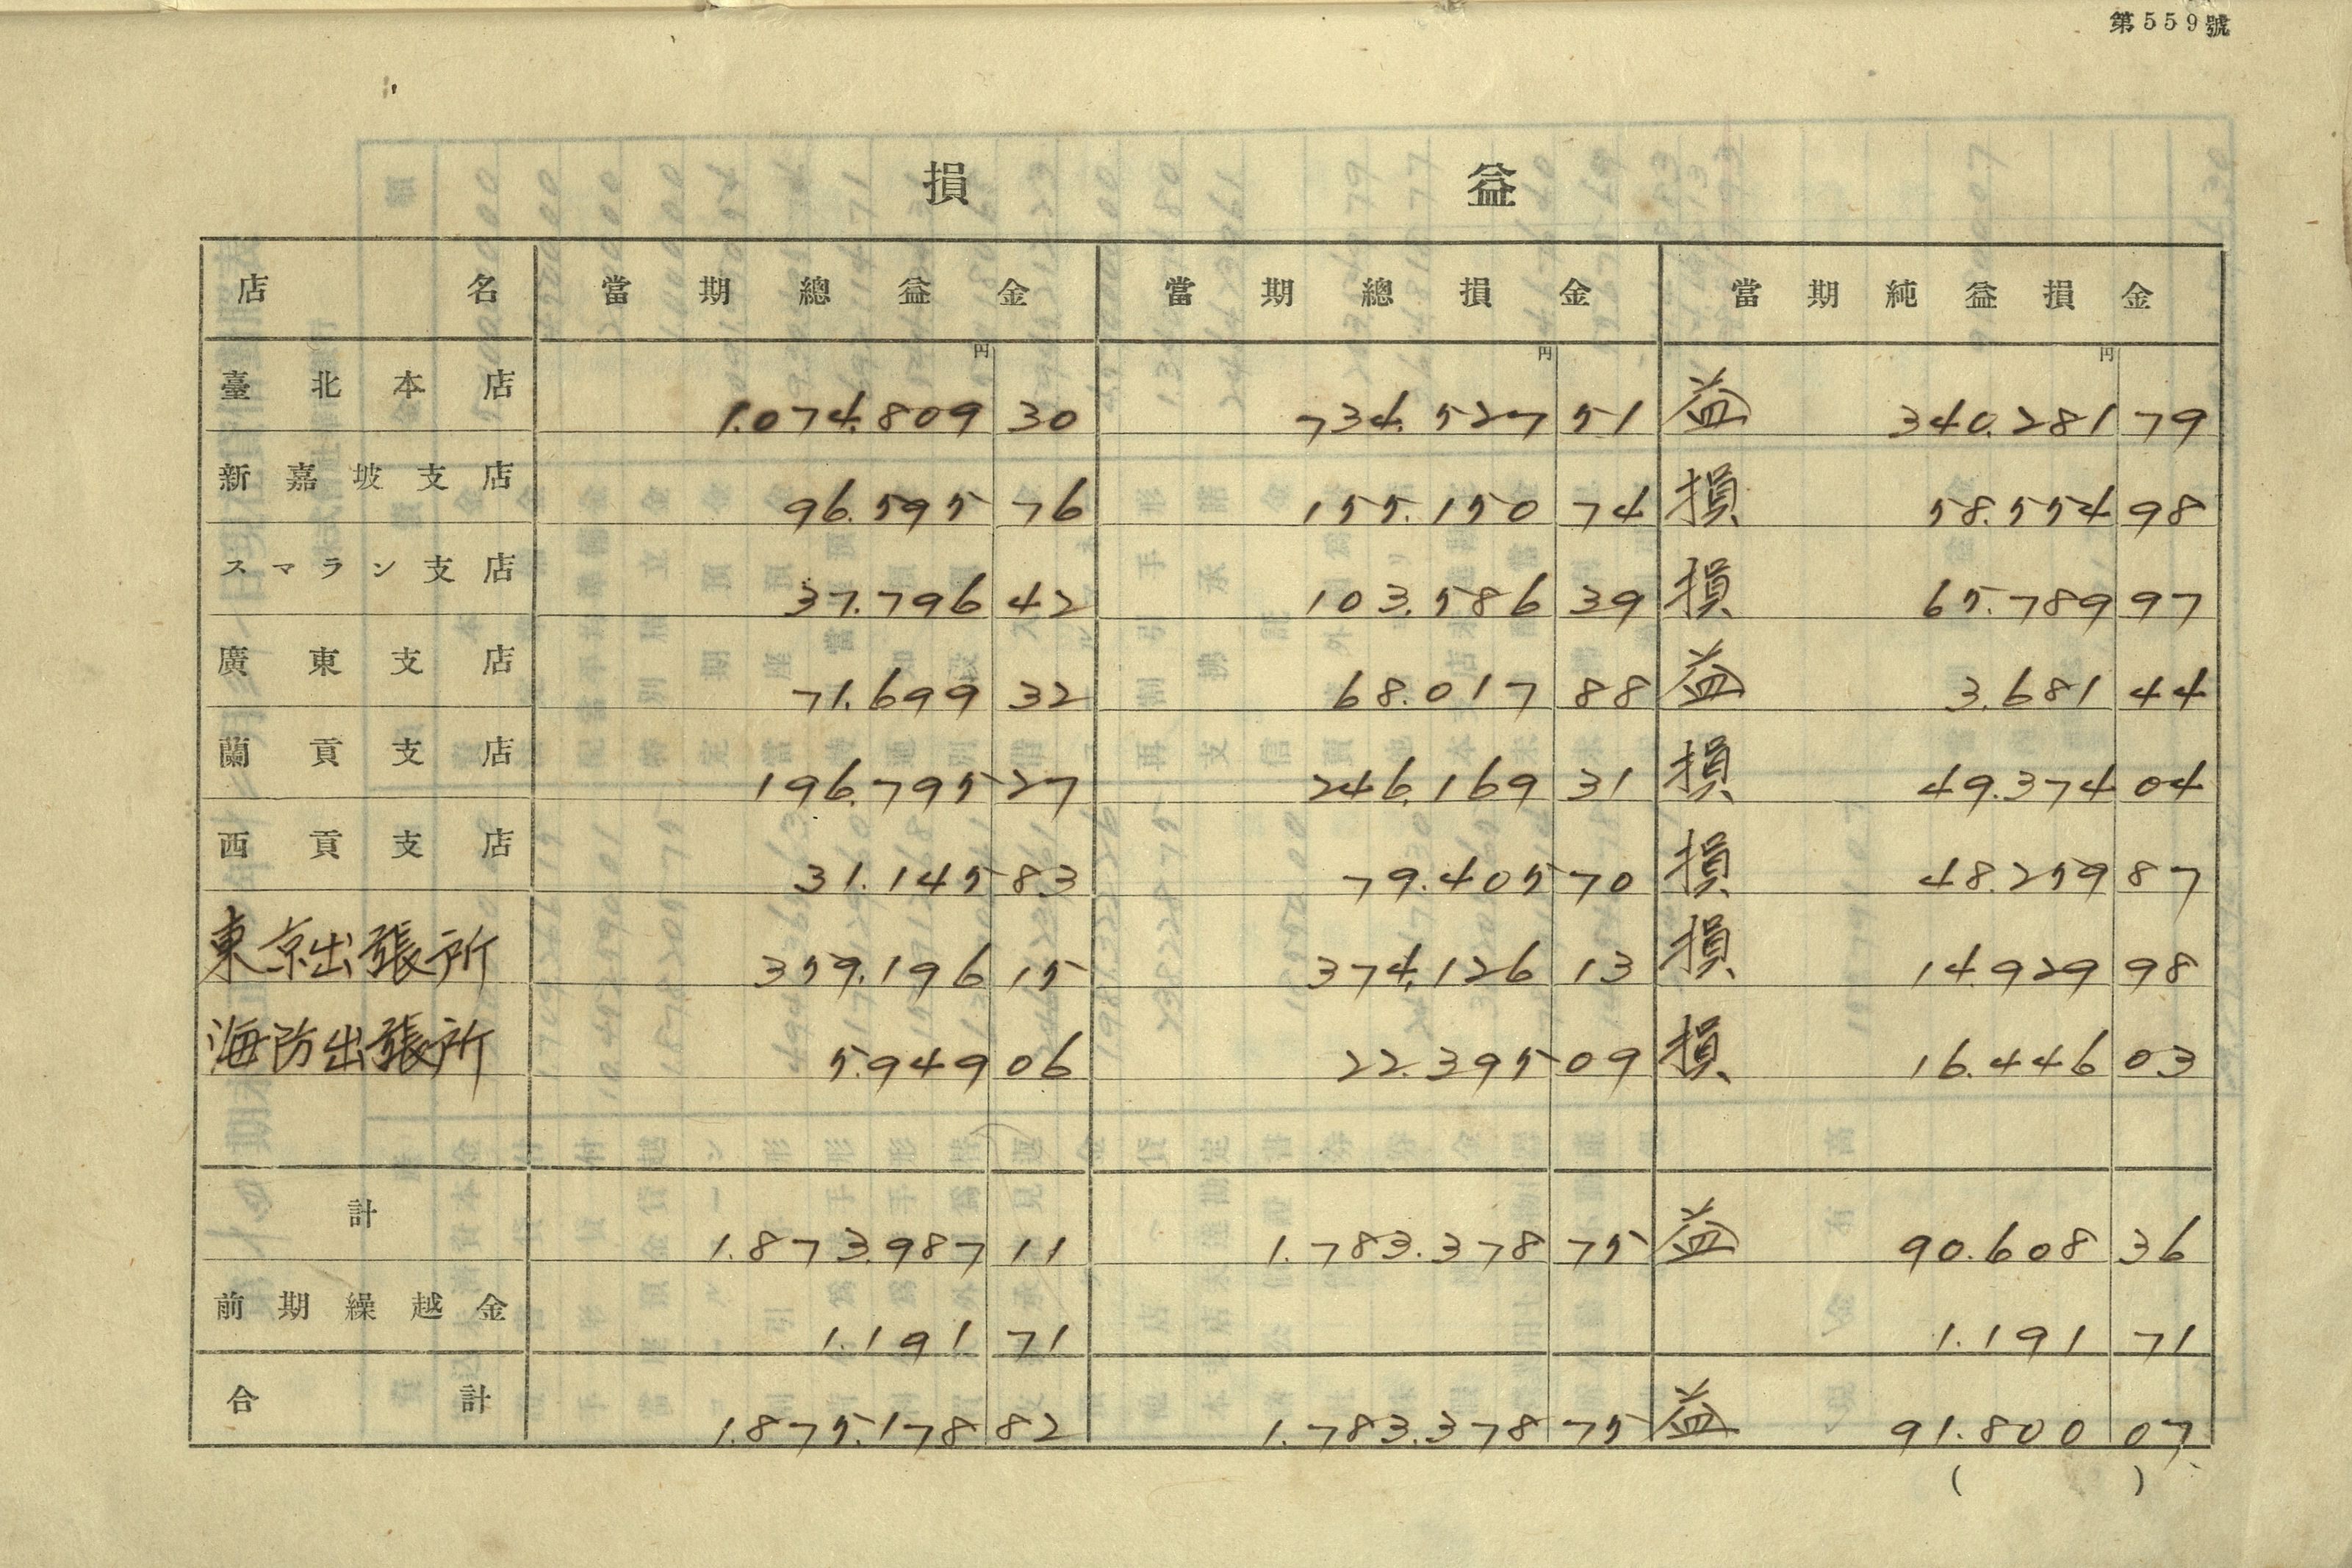 第559號
損益
店名 當期總益金 當期總損金 當期純益損金
円 円 円
臺北本店 1.074.809 30 734.527 51 益 340.281 79
新嘉坡支店 96.595 76 155.150 74 損 58.554 98
スマラン支店 37.796 42 103.586 39 損 65.789 97
廣東支店 71.699 32 68.017 88 益 3.681 44
蘭貢支店 196.795 27 246.169 31 損 49.374 04
西貢支店 31.145 83 79.405 70 損 48.259 87
東京出張所 359.196 15 374.126 13 損 14.929 98
海防出張所 5.949 06 22.395 09 損 16.446 03
計 1.873.987 11 1.783.378 75 益 90.608 36
前期繰越金 1.191 71 1.191 71
合計 1.875.178 82 1.783.378 75 益 91.800 07
( )